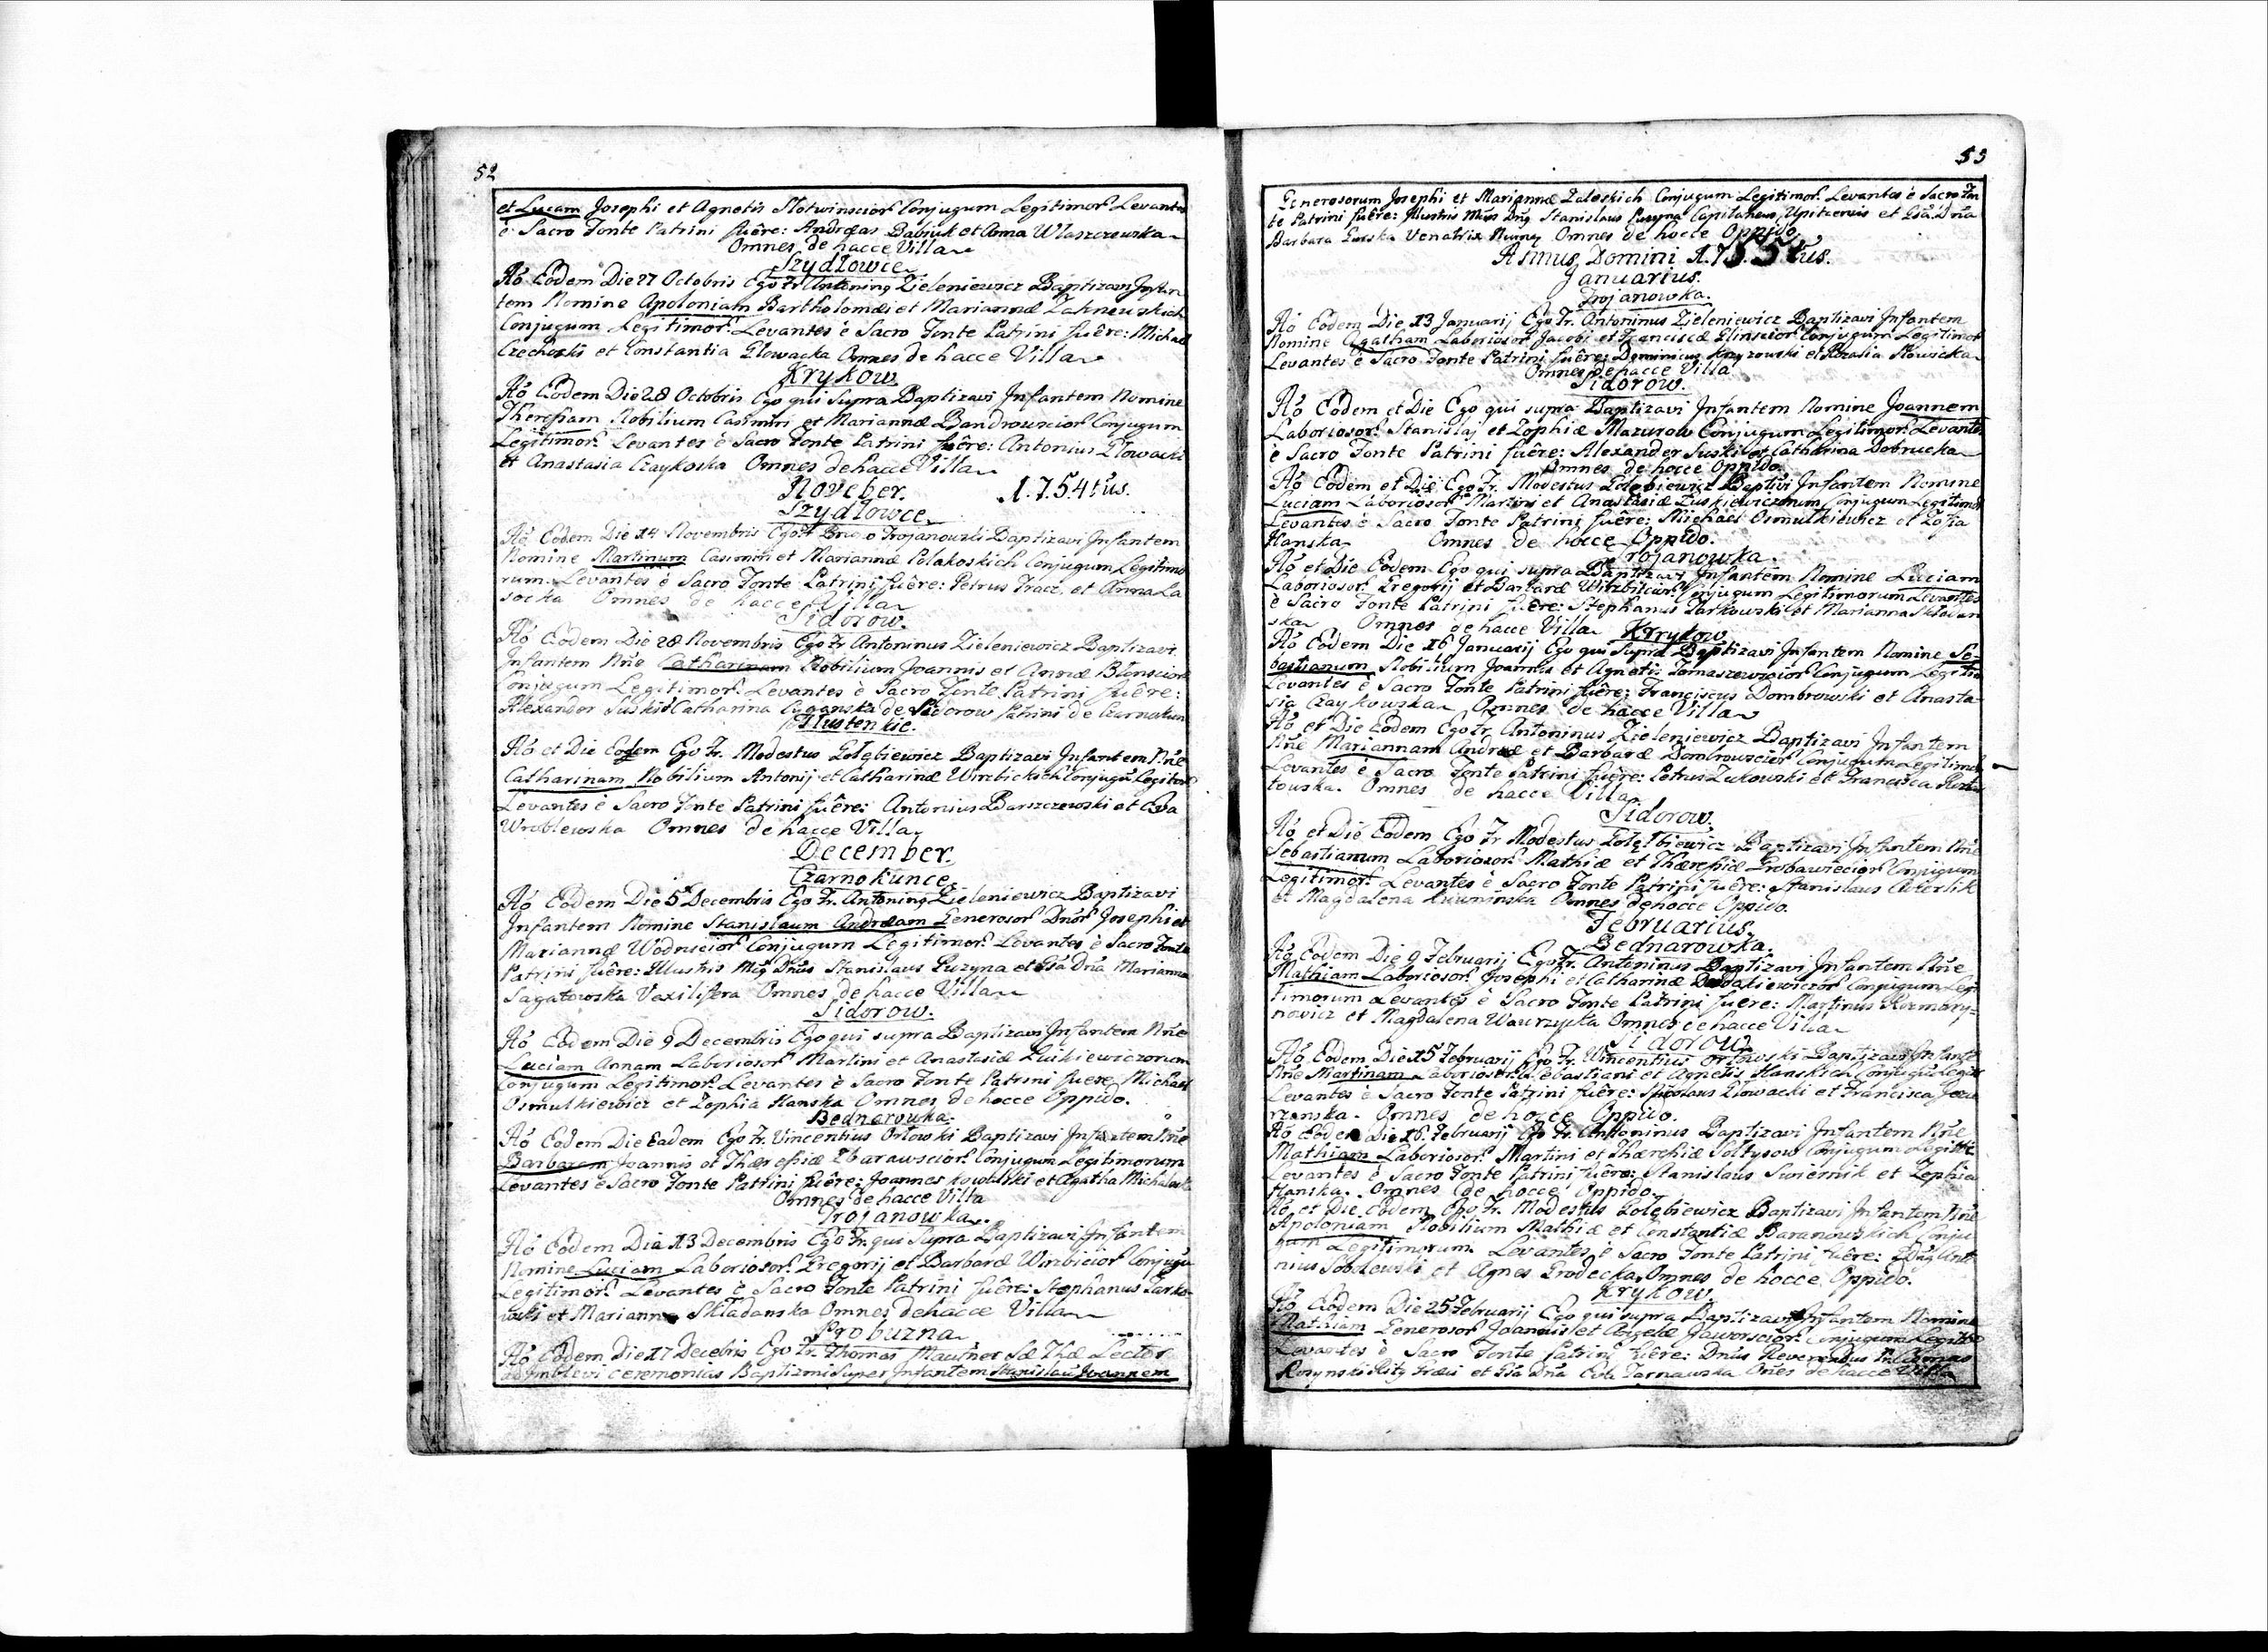 52
et Lucam Josephi et Agnetis Slotwinscior Conjugum Legitimor Levantes
è Sacro Fonte Patrini fuêre: Andreas Babiuk et Anna Wlaszczowska
Omnes de hacce Villa
Szydłowce
Aō Eodem Die 27 Octobris Ego Fr Antoning Zieleniewicz Baptizavi Infan
tem Nomine Apoloniam Bartholomæi et Mariannæ Zahnewskich
Conjugum Legitimor: Levantes è Sacro Fonte Patrini fuêre: Michael
Czechoski et Constantia Głowacka Omnes de hacce Villa
Krykow
Aō Eodem Die 28 Octobris Ego qui supra Baptizavi Infantem Nomine
Theresiam Nobilium Casimiri et Mariannæ Bandrowscior Conjugum
Legitimor. Levantes è Sacro Fonte Patrini fuêre: Antonius Głowacki
et Anastasia Czaykoska Omnes de hacce Villa
Noveber. 1.7.5.4tus.
Szydłowce
Aō Eodem Die 14 Novembris Ego Fr Bruno Trojanowski Baptizavi Infantem
Nomine Martinum Casimiri et Mariannæ Polakoskich Conjugum Legitimo
rum. Levantes è Sacro Fonte Patrini fuêre: Petrus Tracz, et Anna La
socka Omnes de hacce Villa
Sidorow.
Aō Eodem Die 28 Novembris Ego Fr Antoninus Zieleniewicz Baptizavi
Infantem Nn̄e Catharinam Nobilium Joannis et Annæ Błonscior
Conjugum Legitimor. Levantes è Sacro Fonte Patrini fuêre:
Alexander Suski et Catharina Cyganska de Sidorow Patrini de Czarnokun
Hlustenkie.
Aō et Die Eodem Ego Fr. Modestus Gołębiewicz Baptizavi Infantem Nn̄e
Catharinam Nobilium Antonij et Catharinæ Wirzbickich Conjugū Legitor
Levantes è Sacro Fonte Patrini fuêre: Antonius Barszczewski et Eva
Wroblewska Omnes de hacce Villa
December.
Czarnokunce
Aō Eodem Die 5 Decembris Ego Fr. Antoning Zieleniewicz Baptizavi
Infantem Nomine Stanislaum Andræam Generosor Dnōr Josephi et
Mariannæ Wodnicior Conjugum Legitimor. Levantes è Sacro Fonte
Patrini fuêre: Illustris Mig Dn̄us Stanislaus Puzyna et Gsā Dn̄a Marianna
Sagatowska Vexilifera Omnes de hacce Villa
Sidorow.
Aō Eodem Die 9 Decembris Ego qui supra Baptizavi Infantem Nn̄e
Luciam Annam Laboriosor Martini et Anastasiæ Luikiewiczorum
Conjugum Legitimor. Levantes è Sacro Fonte Patrini fuere Michael
Osmulkiewicz et Zophia Hanska Omnes de hocce Oppido.
Bednarowka.
Aō Eodem Die Eadem Ego Fr. Vincentius Orłowski Baptizavi Infantem Nn̄e
Barbaram Joannis et Theresiæ Zbarawscior Conjugum Legitimorum
Levantes è Sacro Fonte Patrini fuêre: Joannes Kowalski et Agatha Michalosk
Omnes de hacce Villa
Trojanowka
Aō Eodem Die 13 Decembris Ego Fr. qui Supra Baptizavi Infantem
Nomine Luciam Laboriosor Gregorij et Barbaræ Wirzbicior Conjugū
Legitimor Levantes è Sacro Fonte Patrini fuêre: Stephanus Tarko
wski et Marianna Składanska Omnes de hacce Villa
Probuzna
Aō Eodem Die 17 Decebris Ego Fr. Thomas Mautner Sæ Thæ Lector
adimblevi ceremonias Baptizmi Super Infantem Stanislaū Joannem
53
Generosorum Josephi et Mariannæ Zaleskich Conjugum Legitimor. Levantes è Sacro Fon
te Patrini fuêre: Illustris Mig Dn̄g Stanislaus Puzyna Capitaneus Upitcensis et Gsā Dn̄a
Barbara Gurska Venatrix Omnes de hocce Oppido
Annus Domini 1.7.5.5tus.
Januarius.
Trojanowka.
Aō Eodem Die 13 Januarij Ego Fr. Antoninus Zieleniewicz Baptizavi Infantem
Nomine Agatham Laboriosor Jacobi et Franciscæ Glinscior Conjugum Legitimor
Levantes è Sacro Fonte Patrini fuêre: Dominicus Knyzowski et Rozalia Nowicka
Omnes de hacce Villa
Sidorow.
Aō Eodem et Die Ego qui supra Baptizavi Infantem Nomine Joannem
Laboriosor Stanislaj et Zophiæ Mazurow Conjugum Legitimor Levantes
è Sacro Fonte Patrini fuêre: Alexander Suski et Catharina Dobrucka
Omnes de hocce Oppido.
Aō Eodem et Die Ego Fr. Modestus Gołębiewicz Baptivi Infantem Nomine
Luciam Laboriosor Martini et Anastasiæ Łuskiewiczorum Conjugum Legitimor
Levantes è Sacro Fonte Patrini fuêre: Michael Osmulkiewicz et Zofia
Hanska Omnes de hocce Oppido.
Trojanowka.
Aō et Die Eodem Ego qui supra Baptizavi Infantem Nomine Luciam
Laboriosor Gregorij et Barbaræ Wirzbicior Conjugum Legitimorum Levantes
è Sacro Fonte Patrini fuêre: Stephanus Tarkowski et Marianna Składan
ska Omnes de hacce Villa Krykow
Aō Eodem Die 16 Januarij Ego qui Supra Baptizavi Infantem Nomine Se-
bastianum Nobilium Joannis et Agnetis Tomaszewscior Conjugum Legitio
Levantes è Sacro Fonte Patrini fuêre: Franciscus Dombrowski et Anasta-
sia Czaykowska Omnes de hacce Villa
Aō et Die Eodem Ego Fr. Antoninus Zieleniewicz Baptizavi Infantem
Nn̄e Mariannam Andreæ et Barbaræ Dombrowscior Conjugum Legitimor
Levantes è Sacro Fonte Patrini fuêre: Petrus Zukowski et Francisca
towska. Omnes de hacce Villa
Sidorow.
Aō et Die Eodem Ego Fr Modestus Gołębiewicz Baptizavi Infantem Nn̄e
Sebastianum Laboriosor Mathiæ et Theresiæ Grobawiecior Conjugum
Legitimor. Levantes è Sacro Fonte Patrini fuêre: Stanislaus
et Magdalena Omnes de hocce Oppido.
Februarius.
Bednarowka.
Aō Eodem Die 9 Februarij Ego Fr. Antoninus Baptizavi Infantem Nn̄e
Mathiam Laboriosor Josephi et Catharinæ Conjugum Legi
timorum Levantes è Sacro Fonte Patrini fuere: Martinus Rozmary-
nowicz et Magdalena Wawrzycka Omnes de hacce Villa
Sidorow
Aō Eodem Die 15 Februarij Ego Fr. Vincentius Orłowski Baptizavi Infante
Nn̄e Martinam Laboriosor Sebastiani et Agnetis Hanskich Conjugū Legit
Levantes è Sacro Fonte Patrini fuêre: Nicolaus Głowacki et Francisca
rzanska. Omnes de hocce Oppido.
Aō Eodem Die 16 Februarij Ego Fr. Antoninus Baptizavi Infantem Nn̄e
Mathiam Laboriosor Martini et Theresiæ Sołtysow Conjugum Legitic
Levantes è Sacro Fonte Patrini fuêre: Stanislaus Swiernik et Zophia
Hanska. Omnes de hocce Oppido
Aō et Die Eodem Ego Fr. Modestus Gołębiewicz Baptizavi Infantem Nn̄e
Apoloniam Nobilium Mathiæ et Constantiæ Baranowskich Conju
gum Legitimorum Levantes è Sacro Fonte Patrini fuêre: Dn̄g Anto
nius Sobolewski et Agnes Grodecka Omnes de hocce Oppido.
Krykow.
Aō Eodem Die 25 Februarij Ego qui supra Baptizavi Infantem Nomine
Mathiam Generosor Joannis et Angelæ Jaworscior Conjugum Legitio
Levantes è Sacro Fonte Patrini fuêre: Dn̄us Reverendus
et Gsā Dn̄a Eva Tarnawska Om̄es de hacce Villa